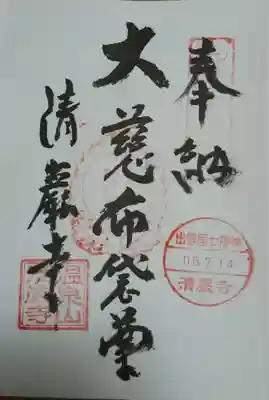 奉納
大慈布袋尊
清巖寺
出雲国七福神
06.7.14
清巖寺
温泉山
清巖寺